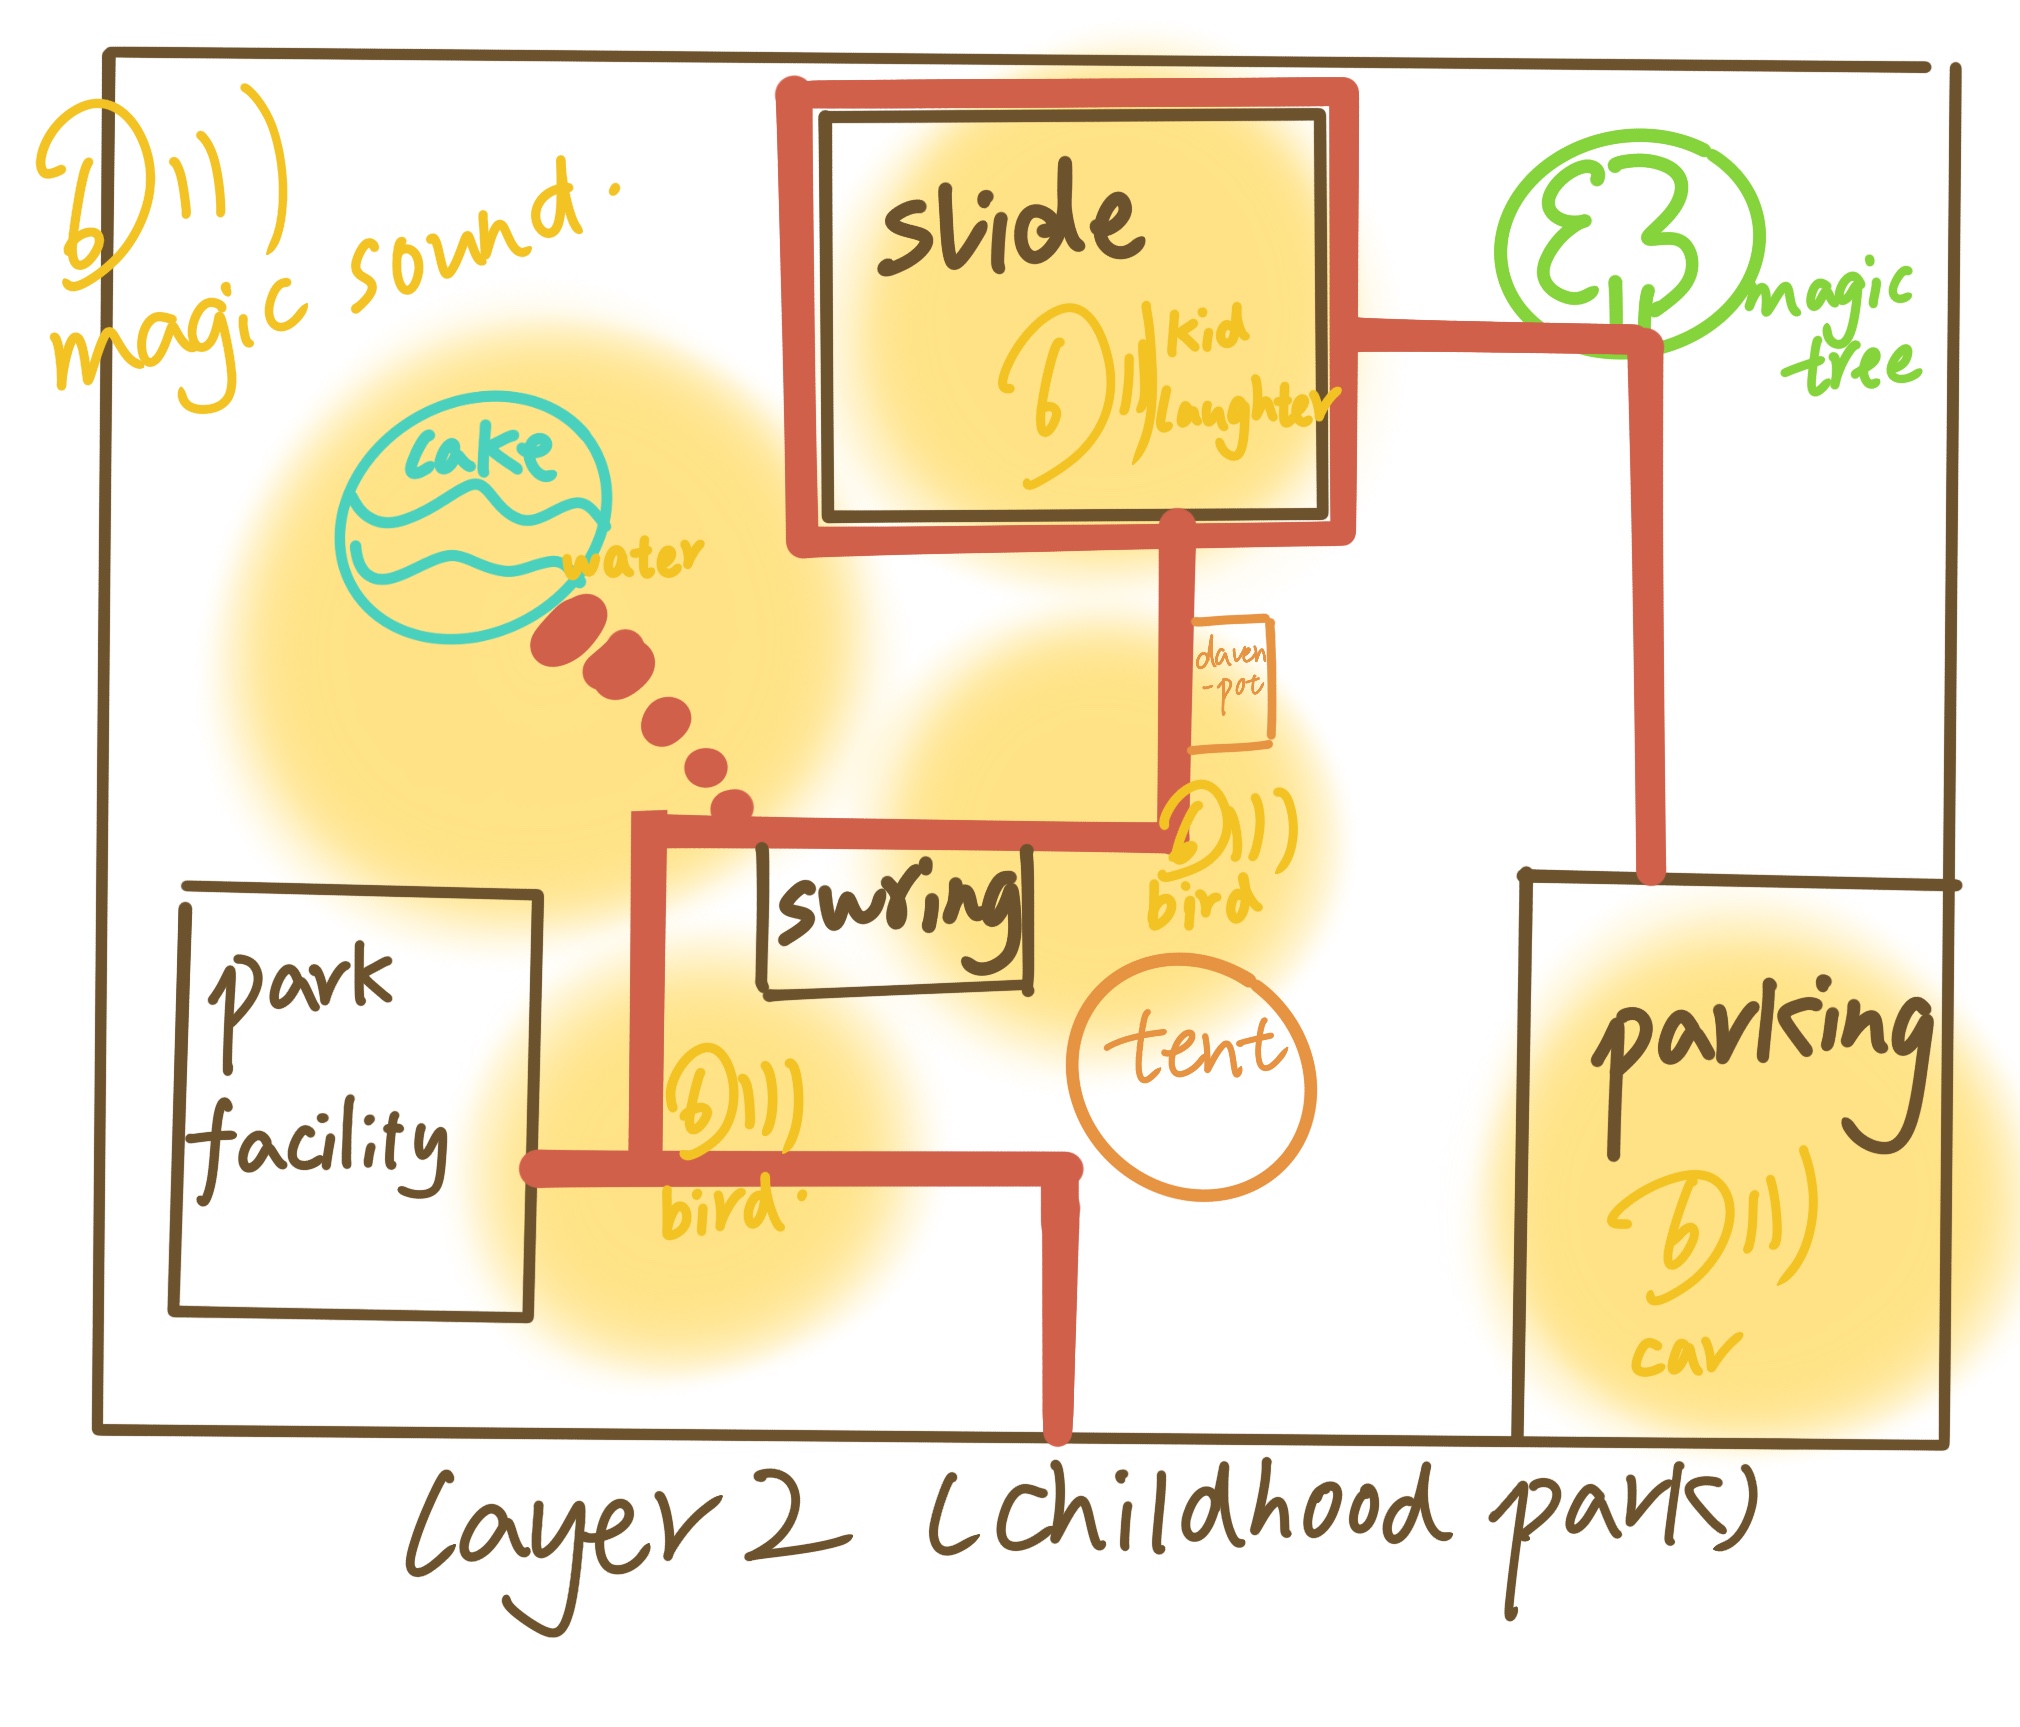 magic sound.
slide
kid
laughter
magic
tree
cake
water
daven
-pot
swing
bird
park
facility
tent
parking
bird.
car
Layer 2 (childhood park)